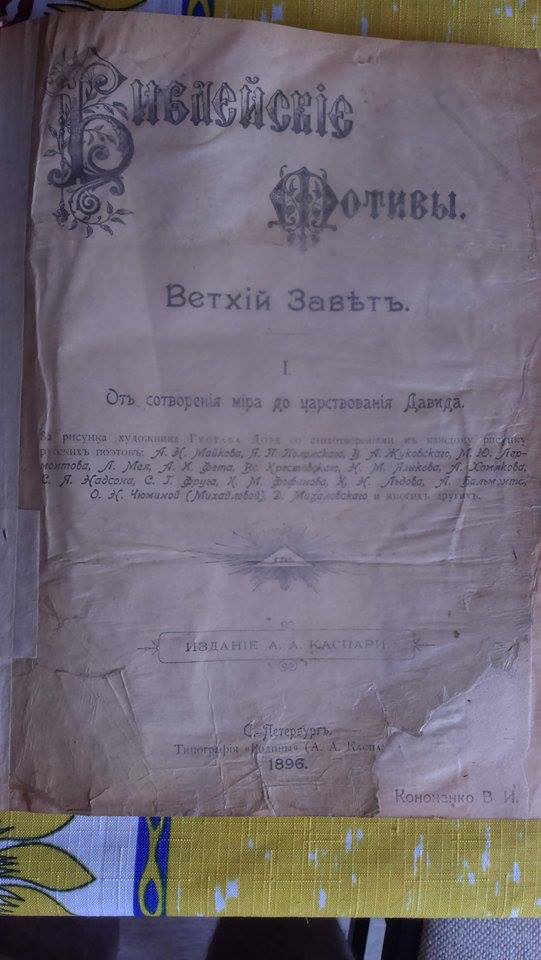 Библейскіе
Мотивы.
Ветхій Завѣтъ.
I.
Отъ сотворенія міра до царствованія Давида.
рисунка художника Густава Доре со стихотвореніями къ каждому рисунку
русскихъ поэтовъ: А. Н. Майкова, Я. П. Полонскаго, В. А. Жуковскаго, М. Ю. Лер-
монтова, Л. Мея, А. И. Фета, Вс. Крестовскаго, Н. М. Языкова, А. Хомякова,
С. Я. Надсона, С. Г. Фруга, К. М. Фофанова, К. Н. Льдова, А. Бальмонта,
О. Н. Чюминой (Михайловой), Д. Михаловскаго и многихъ другихъ.
ИЗДАНІЕ А. А. КАСПАРИ
С.-Петербургъ.
Типографія «Родины» (А. А. Каспа
1896.
Кононенко В И.